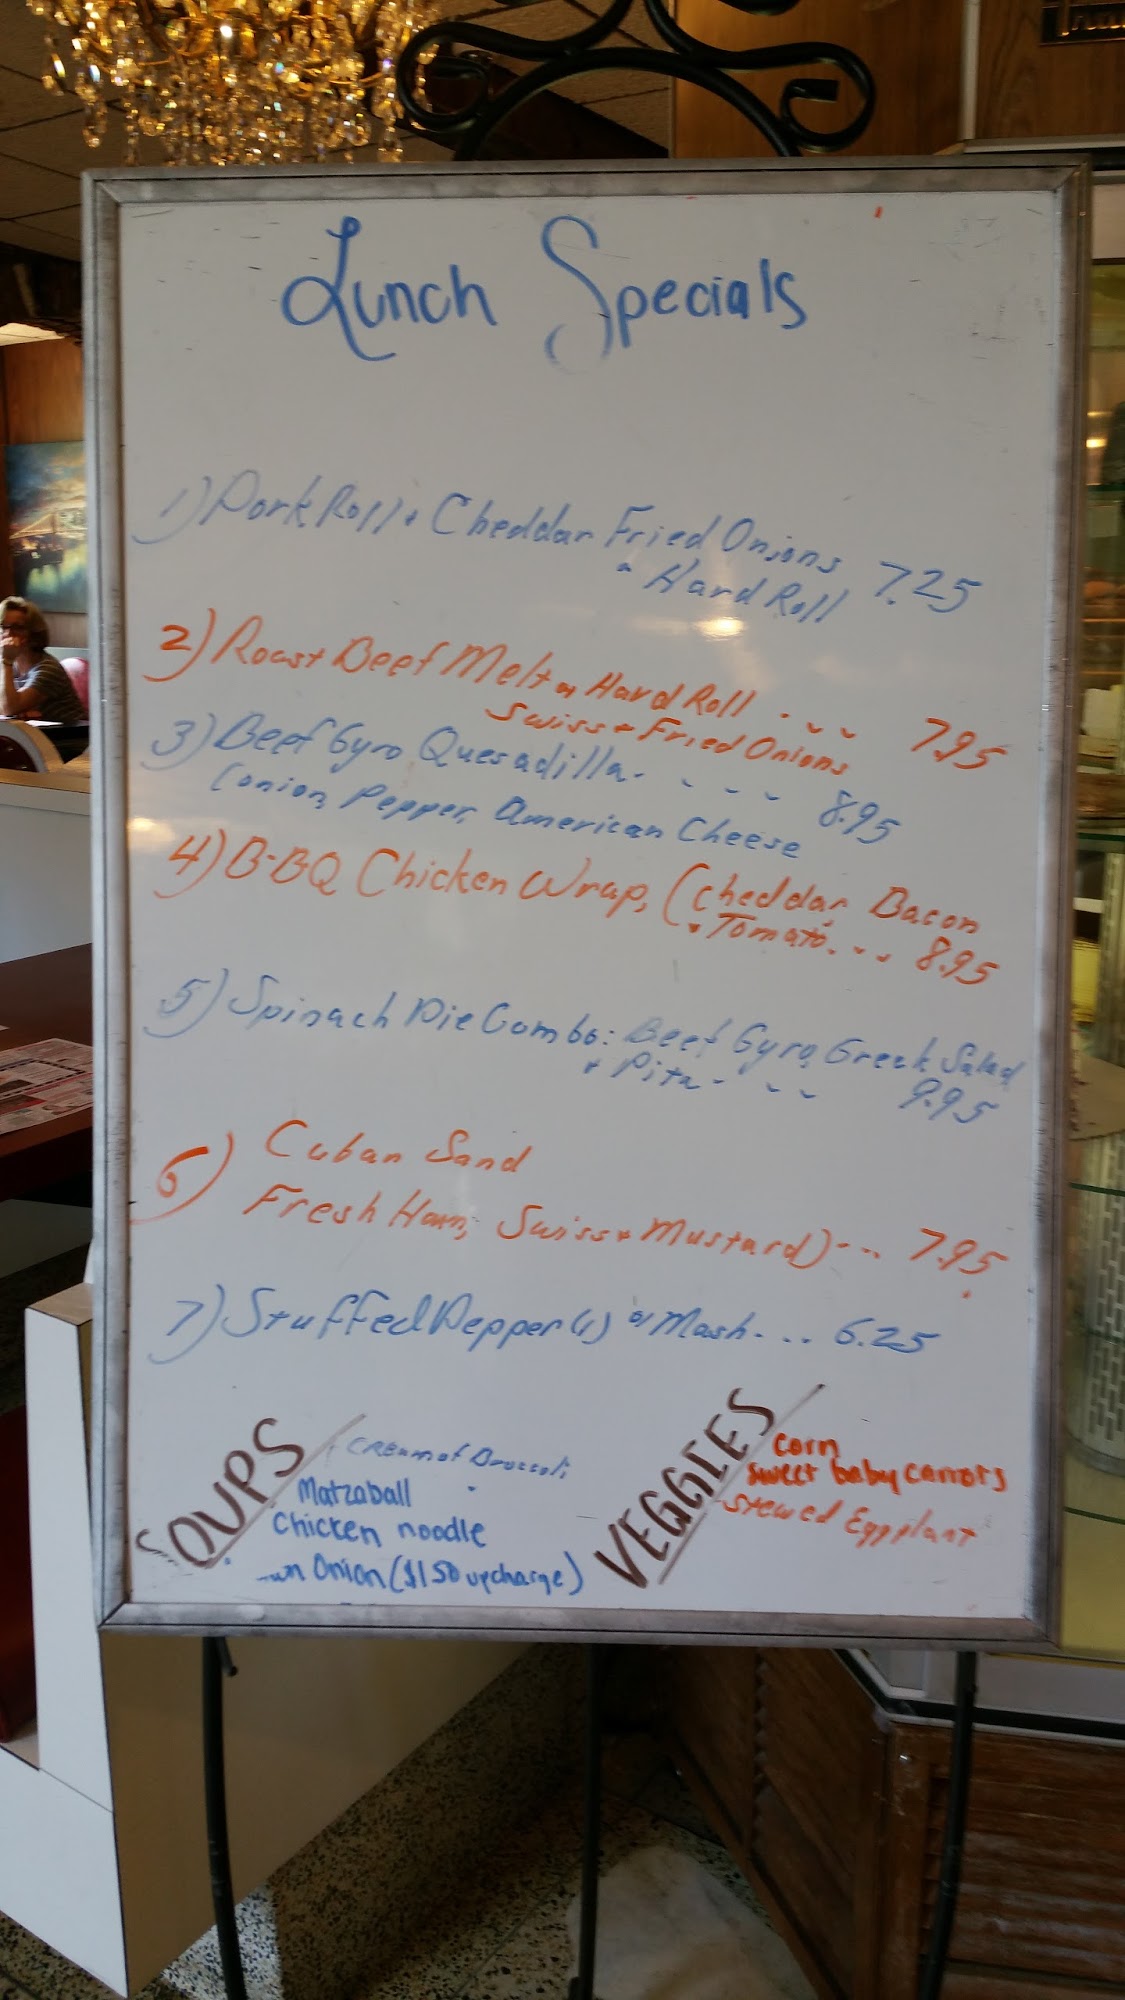 Lunch Specials
1) Pork Roll + Cheddar Fried Onions
Hard Roll 7.25
2) Roast Beef Melt on Hard Roll ... 7.95
Swiss + Fried Onions
3) Beef Gyro Quesadilla.... 8.95
(onion, Pepper, American Cheese
4) B-BQ Chicken Wrap, (cheddar, Bacon
+ Tomato... 8.95
5) Spinach Pie Combo: Beef Gyro, Greek Salad
+ Pita... 9.95
6) Cuban Sand
Fresh Ham, Swiss + Mustard)... 7.95
7) Stuffed Pepper (1) w/ Mash... 6.25
SOUPS
CREAM of Broccoli
Matzaball
Chicken noodle
Onion ($1.50 upcharge)
VEGGIES
corn
sweet baby carrots
stewed Eggplant